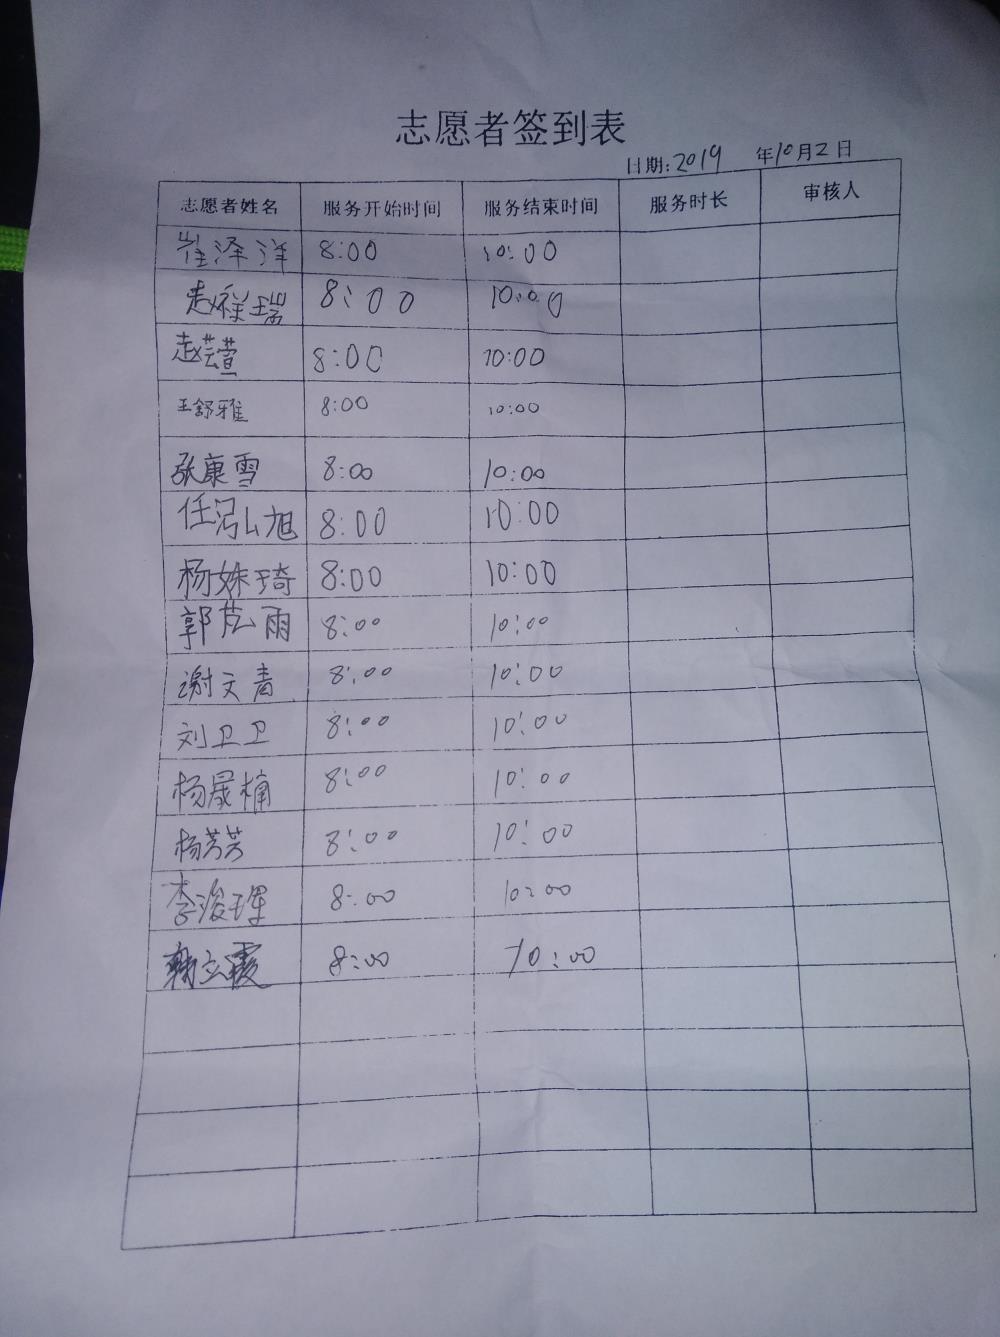 志愿者签到表
日期:2019 年10月2日
志愿者姓名 服务开始时间 服务结束时间 服务时长 审核人
崔泽洋 8:00 10:00
赵祥瑞 8:00 10:00
赵芸萱 8:00 10:00
王舒雅 8:00 10:00
张康雪 8:00 10:00
任泓旭 8:00 10:00
杨姝琦 8:00 10:00
郭芯雨 8:00 10:00
谢文青 8:00 10:00
刘卫卫 8:00 10:00
杨晟楠 8:00 10:00
杨芳芳 8:00 10:00
李浚珲 8:00 10:00
韩立霞 8:00 10:00